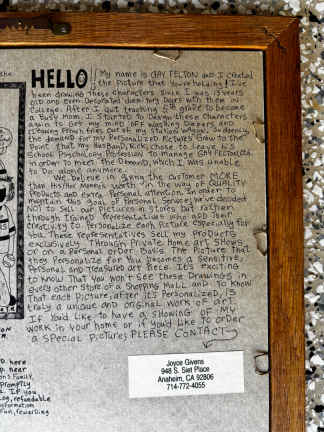 the
HELLO!! My name is GAY FELTON and I created
the Picture that You're holding! I've
been drawing these characters since I was 13 years
old and even Decorated dormitory Doors with them in
College. After I quit teaching 5th grade to become
a busy Mom, I started to Design these characters
again to get my mind off washing Diapers and
cleaning french fries out of my station wagon. Suddenly,
the demand for my Personalized Pictures grew to the
Point that my Husband, Rick, chose to leave his
School Psychology Profession to manage GAY FELTON, INC.
in order to meet the Demand, which I was unable
to do alone anymore.
We believe in giving the customer MORE
than his/her money's worth in the way of QUALITY
PRODUCTS and extra Personal attention. In order to
maintain this goal of Personal Service, we've decided
NOT to sell our Pictures in stores but rather
through trained representatives who add their
creativity to Personalize each Picture especially for
you. These representatives sell my Products
exclusively through Private home art shows
or on a Personal order basis. The Picture that
they Personalize for you becomes a sensitive,
Personal and treasured art Piece. It's exciting
to know that you won't see these Drawings in
every other store or a shopping mall and to know
that each Picture, after it's Personalized, is
truly a unique and original work of art.
If you'd like to have a showing of my
work in your home or if you'd like to order
a special Picture, PLEASE CONTACT
Joyce Givens
948 S. Siet Place
Anaheim, CA 92806
714-772-4055
ON
here
near
Family,
promptly
If you
log, refundable
formation
fun, rewarding